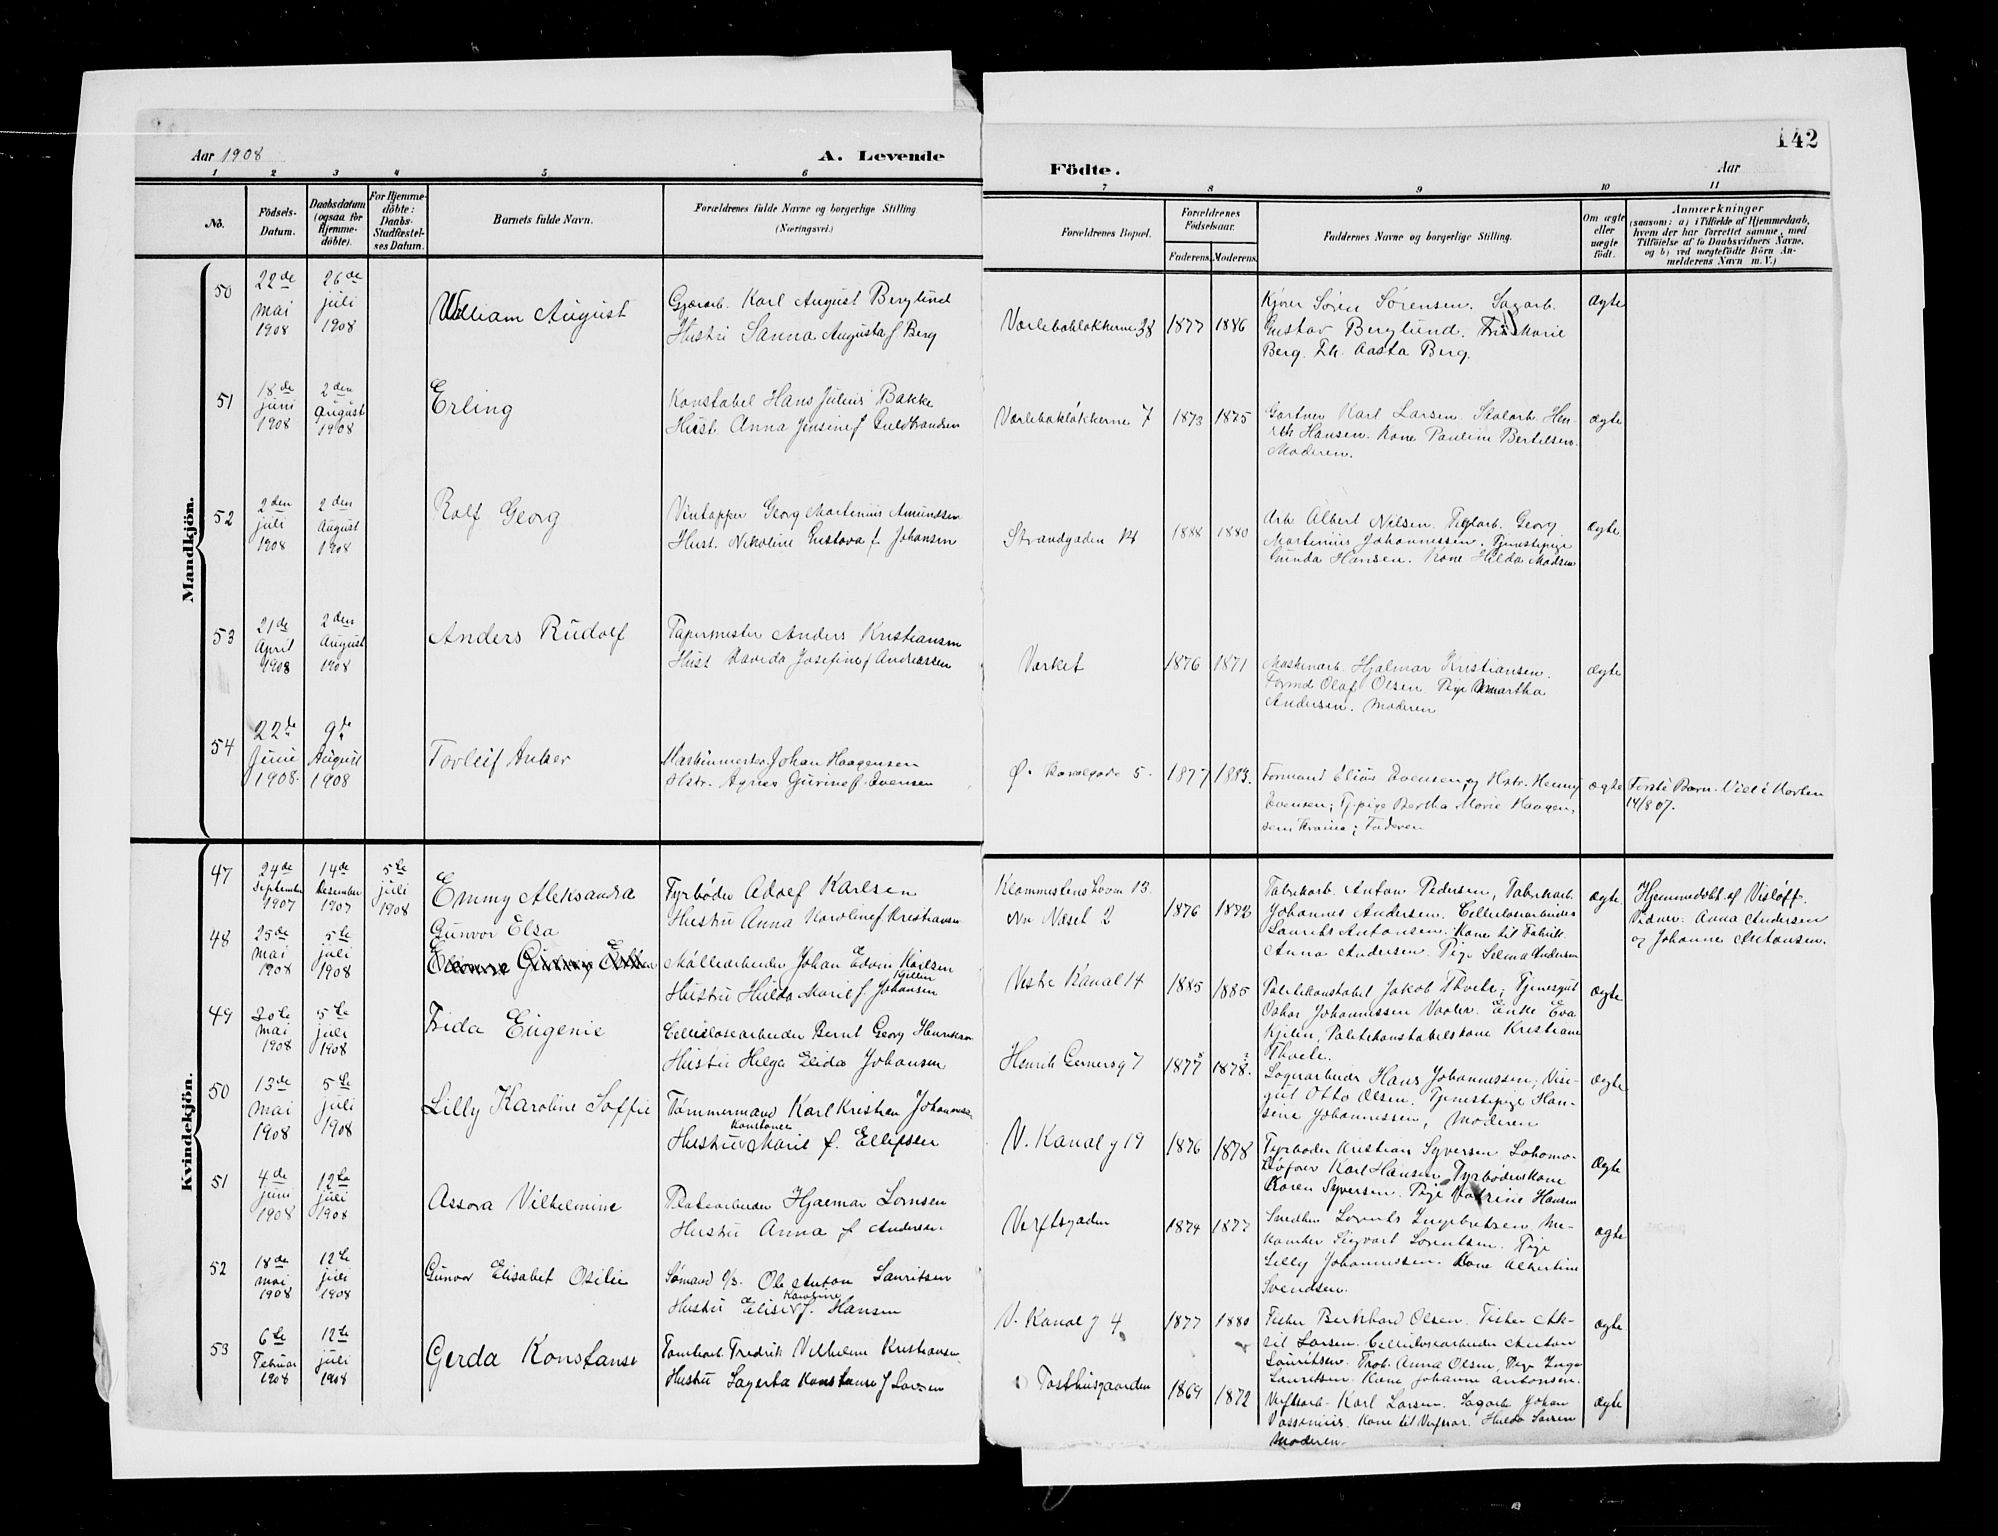 142
Aar 1908
A. Levende
Födte.
Aar
1 2 3 4 5 6 7 8 9 10 11
No.
Födsels-
Datum.
Daabsdatum
(ogsaa for
Hjemme-
döbte).
For Hjemme-
döbte:
Daabs-
Stadfæstel-
ses Datum.
Barnets fulde Navn.
Forældrenes fulde Navne og borgerlige Stilling
(Næringsvei.)
Forældrenes Bopæl.
Forældrenes
Födselsaar.
Faderens. Moderens.
Faddernes Navne og borgerlige Stilling.
Om ægte
eller
uægte
født.
Anmærkninger
(saasom: a) i Tilfælde af Hjemmedaab,
hvem der har forrettet samme, med
Tilföielse af to Daabsvidners Navne,
og b) ved uægtefödte Börn An-
melderens Navn m. V.)
Mandkjön.
50
22de
mai
1908
26de
juli
1908
William August
Karl August Berglund
Hustru Sanna Augusta f Berg
Værlebakløkkerne 38
1877 1886
Kjører Søren Sørensen. Sagarb.
Gustav Berglund. Marie
Berg. Aasta Berg.
ægte
51
18de
juni
1908
2den
August
1908
Erling
Konstabel Hans Julius Bakke
Hust. Anna Jensine f Guldbrandsen
Værlebakløkkerne 7
1873 1875
Gartner Karl Larsen.
Hansen. Kone Pauline Bertelsen.
Moderen.
ægte
52
2den
juli
1908
2den
August
1908
Rolf Georg
Vintapper Georg Martinius Amundsen
Hust. Nikoline Gustava f. Johansen
Strandgaden 14
1888 1880
Arb Albert Nilsen. Georg
Martinius Johannessen. Tjenestepige
Gunda Hansen. Kone Hilda Madsen
ægte
53
21de
April
1908
2den
August
1908
Anders Rudolf
Papermester Anders Kristiansen
Hust Davida Josefine f Andreassen
Værket
1876 1871
Maskinarb. Hjalmar Kristiansen.
Formd Olaf Olsen Pige Martha
Andersen. Moderen
ægte
54
22de
Juni
1908.
9de
August
1908
Torleif Anker
Maskinmester Johan Haagensen
Hstr. Agnes Gurine f. Evensen
Ø. Kanalgade 5.
1877 1883.
Formand Elius Evensen og Hstr. Henny
Evensen; Tj.pige Bertha Marie Haagen-
sen; Faderen
ægte
Første Barn. Viet i Horten
14/8 07.
Kvindekjön.
47
24de
September
1907
14de
Desember
1907
5te
juli
1908
Emmy Aleksandra
Fyrbøder Adolf Karlsen
Hustru Anna Karoline f Kristiansen
13.
2
1876 1872
Fabrikarb. Anton Pedersen, Fabrikarb.
Johannes Andersen. Cellulosearbeider
Laurits Antonsen. Kone til Fabrik
Anna Andersen. Pige Selma Andersen
ægte
Hjemmedøbt af Visløff
Vidner: Anna Andersen
og Johanne Antonsen.
48
25de
mai
1908
5te
juli
1908
Gunvor Elsa
Møllearbeider Johan Edvin Karlsen
Hustru Hilda Marie f. Johansen
Kjellin
Vestre Kanal 14
1885 1885
Politikonstabel Jakob Thvete; Tjenesgut
Oskar Johannessen Vaaler. Enke Eva
Kjelin, Politikonstabelskone Kristiane
Thvete.
ægte
49
30te
mai
1908
5te
juli
1908
Frida Eugenie
Cellulosearbeider Bernt Georg Henriksen
Hustru Helga Elida Johansen
Henrik Gernersg 7
1877 1878.
Lagerarbeider Hans Johannessen; Vise-
gut Otto Olsen. Tjenestepige Han-
sine Johannessen, Moderen
ægte
50
13de
mai
1908
5te
juli
1908
Lilly Karoline Soffie
Tømmermand Karl Kristian Johannessen
Konstance
Hustru Marie f. Ellefsen
V. Kanal g 19
1876 1878
Fyrbøder Kristian Syversen. Lokomo-
tivfører Karl Hansen. Fyrbøderskone
Karen Syversen. Pige Katrine Hansen
ægte
51
4de
juni
1908
12te
juli
1908
Assora Vilhelmine
Platearbeider Hjalmar Lornsen
Hustru Anna f Andersen
Verftsgaden
1874 1877
Snedker Lorents Ingebretsen. Me-
kaniker Sigvart Lorentsen. Pige
Lilly Johannessen. Kone Albertine
Svendsen.
ægte
52
18de
mai
1908
12te
juli
1908
Gunvor Elisabet Otilie
Sømand Ole Anton Lauritsen
Karoline
Hustru Elise f. Hansen
V. Kanal g 4
1877 1880
Fisker Bernhard Olsen. Fisker Ak-
sel Larsen. Cellulosearbeider Anton
Lauritsen. Anna Olsen, Pige Inga
Lauritsen. Kone Johanne Antonsen.
ægte
53
6te
Februar
1908
12te
juli
1908
Gerda Konstanse
Fredrik Vilhelm Kristiansen
Hustru Lagerta Konstanse f Larsen
Posthusgaarden
1869 1872
Verftsarb. Karl Larsen. Sagarb Johan
Kone til Verftsar. Hulda Larsen
Moderen.
ægte